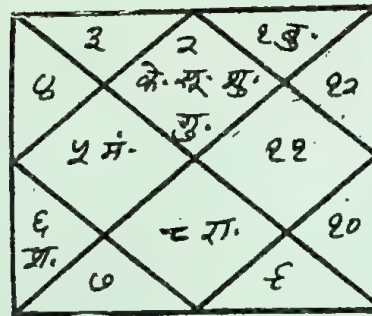 ३ २ १ बु.
४ के. सू. शु. १२
गु.
५ मं. ११
६ ८ रा. १०
श.
७ ९